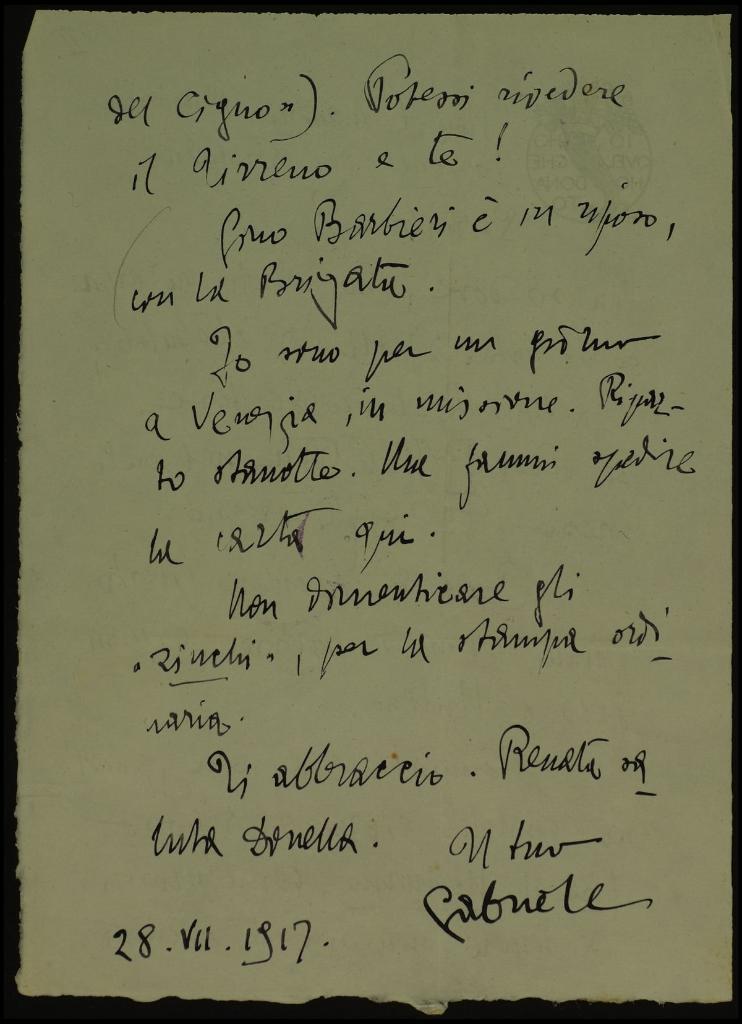 del Cigno»). Potessi rivedere
il Tirreno e te!
Gino Barbieri è in riposo,
con la Brigata.
Io sono per un giorno
a Venezia, in missione. Ripar-
to stanotte. Ma fammi spedire
la carta qui.
Non dimenticare gli
«zinchi», per la stampa ordi
naria.
Ti abbraccio. Renata sa
luta Donella. Il tuo
Gabriele
28.VII.1917.